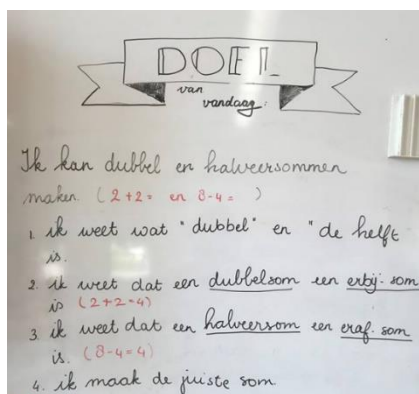 DOEL
van
vandaag:
Ik kan dubbel en halveersommen
maken. (2+2= en 8-4= )
1. ik weet wat "dubbel" en "de helft
is.
2. ik weet dat een dubbelsom een erbij-som
is (2+2=4)
3. ik weet dat een halveersom een eraf-som
is. (8-4=4)
4. ik maak de juiste som